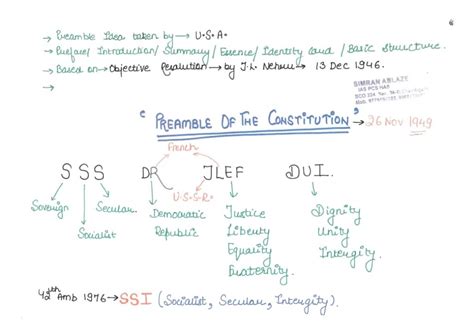 → Preamble Idea taken by → U.S.A.
→ Preface/ Introduction/ Summary/ Essence/ Identity card / Basic Structure.
→ Based on → Objective Resolution → by J.L. Nehru → 13 Dec 1946.
→
SIMRAN ABLAZE
IAS PCS HAS
" PREAMBLE OF THE CONSTITUTION " → 26 NOV 1949
French
SSS DR JLEF DUI.
U.S.S.R.
Sovereign Secular Democratic Justice Dignity
Socialist Republic Liberty Unity
Equality Intergity.
Fraternity.
42th Amb 1976 → SSI (Socialist, Secular, Intergity).